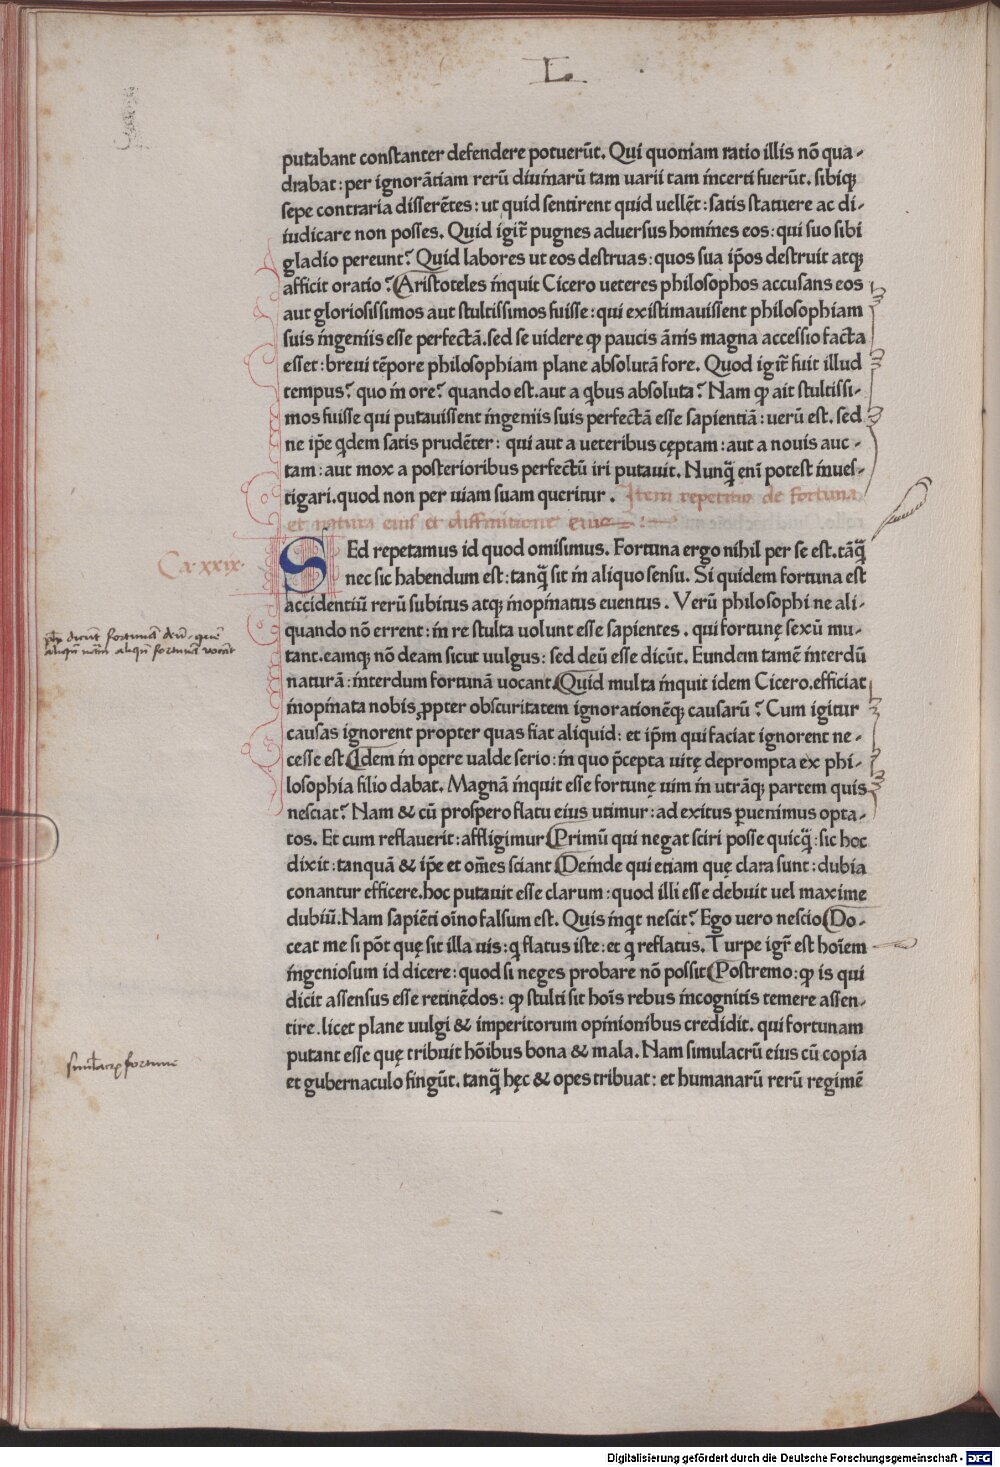 L
putabant constanter defendere potuerūt. Qui quoniam ratio illis nō qua-
drabat: per ignorãtiam rerũ diuinarũ tam uarii tam incerti fuerũt. sibiqꝫ
sepe contraria disserẽtes: ut quid sentirent quid uellẽt: satis statuere ac di-
iudicare non posses. Quid igit̃ pugnes aduersus homines eos: qui suo sibi
gladio pereunt? Quid labores ut eos destruas: quos sua ip̃os destruit atqꝫ
afficit oratio? Aristoteles inquit Cicero ueteres philosophos accusans eos
aut gloriosissimos aut stultissimos fuisse: qui existimauissent philosophiam
suis ingeniis esse perfectã. sed se uidere ꝙ paucis ãnis magna accessio facta
esset: breui tẽpore philosophiam plane absolutã fore. Quod igit̃ fuit illud
tempus? quo in ore? quando est. aut a qbus absoluta? Nam ꝙ ait stultissi-
mos fuisse qui putauissent ingeniis suis perfectã esse sapientiã: uerũ est. sed
ne ip̃e qdem satis prudẽter: qui aut a ueteribus cęptam: aut a nouis auc-
tam: aut mox a posterioribus perfectũ iri putauit. Nunq̃ eni potest inues-
tigari. quod non per uiam suam queritur. Item repetitio de fortuna
et natura eius et diffinitione eius
Ca xxix.
SEd repetamus id quod omisimus. Fortuna ergo nihil per se est. tãq̃
nec sic habendum est: tanq̃ sit in aliquo sensu. Si quidem fortuna est
accidentiũ rerũ subitus atqꝫ inopinatus euentus. Verũ philosophi ne ali-
quando nō errent: in re stulta uolunt esse sapientes. qui fortunę sexũ mu-
tant. eamqꝫ nō deam sicut uulgus: sed deũ esse dicũt. Eundem tamẽ interdũ
naturã: interdum fortunã uocant. Quid multa inquit idem Cicero. efficiat
inopinata nobis ꝓpter obscuritatem ignorationẽqꝫ causarũ? Cum igitur
causas ignorent propter quas fiat aliquid: et ip̃m qui faciat ignorent ne-
cesse est. Idem in opere ualde serio: in quo p̃cepta uitę deprompta ex phi-
losophia filio dabat. Magnã inquit esse fortunę uim in utrãqꝫ partem quis
nesciat? Nam & cũ prospero flatu eius utimur: ad exitus puenimus opta-
tos. Et cum reflauerit: affligimur. Primũ qui negat sciri posse quicq̃: sic hoc
dixit: tanquã & ip̃e et om̃es sciant. Deinde qui etiam quę clara sunt: dubia
conantur efficere. hoc putauit esse clarum: quod illi esse debuit uel maxime
dubiũ. Nam sapiẽti oĩno falsum est. Quis inqt nescit? Ego uero nescio. Do-
ceat me si põt quę sit illa uis: q flatus iste: et q reflatus. Turpe igr̃ est hoĩem
ingeniosum id dicere: quod si neges probare nō possit. Postremo: ꝙ is qui
dicit assensus esse retinẽdos: ꝙ stulti sit hoĩs rebus incognitis temere assen-
tire. licet plane uulgi & imperitorum opinionibus credidit. qui fortunam
putant esse quę tribuit hōibus bona & mala. Nam simulacrũ eius cũ copia
et gubernaculo fingũt. tanq̃ hęc & opes tribuat: et humanarũ rerũ regimẽ
Digitalisierung gefördert durch die Deutsche Forschungsgemeinschaft - DFG